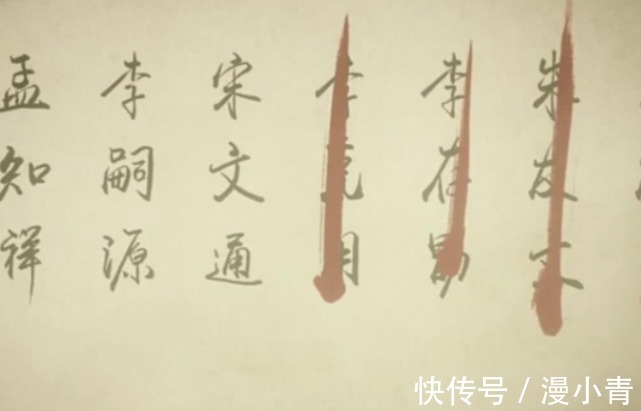 朱友文
李存勖
李克用
宋文通
李嗣源
孟知祥
快传号/漫小青